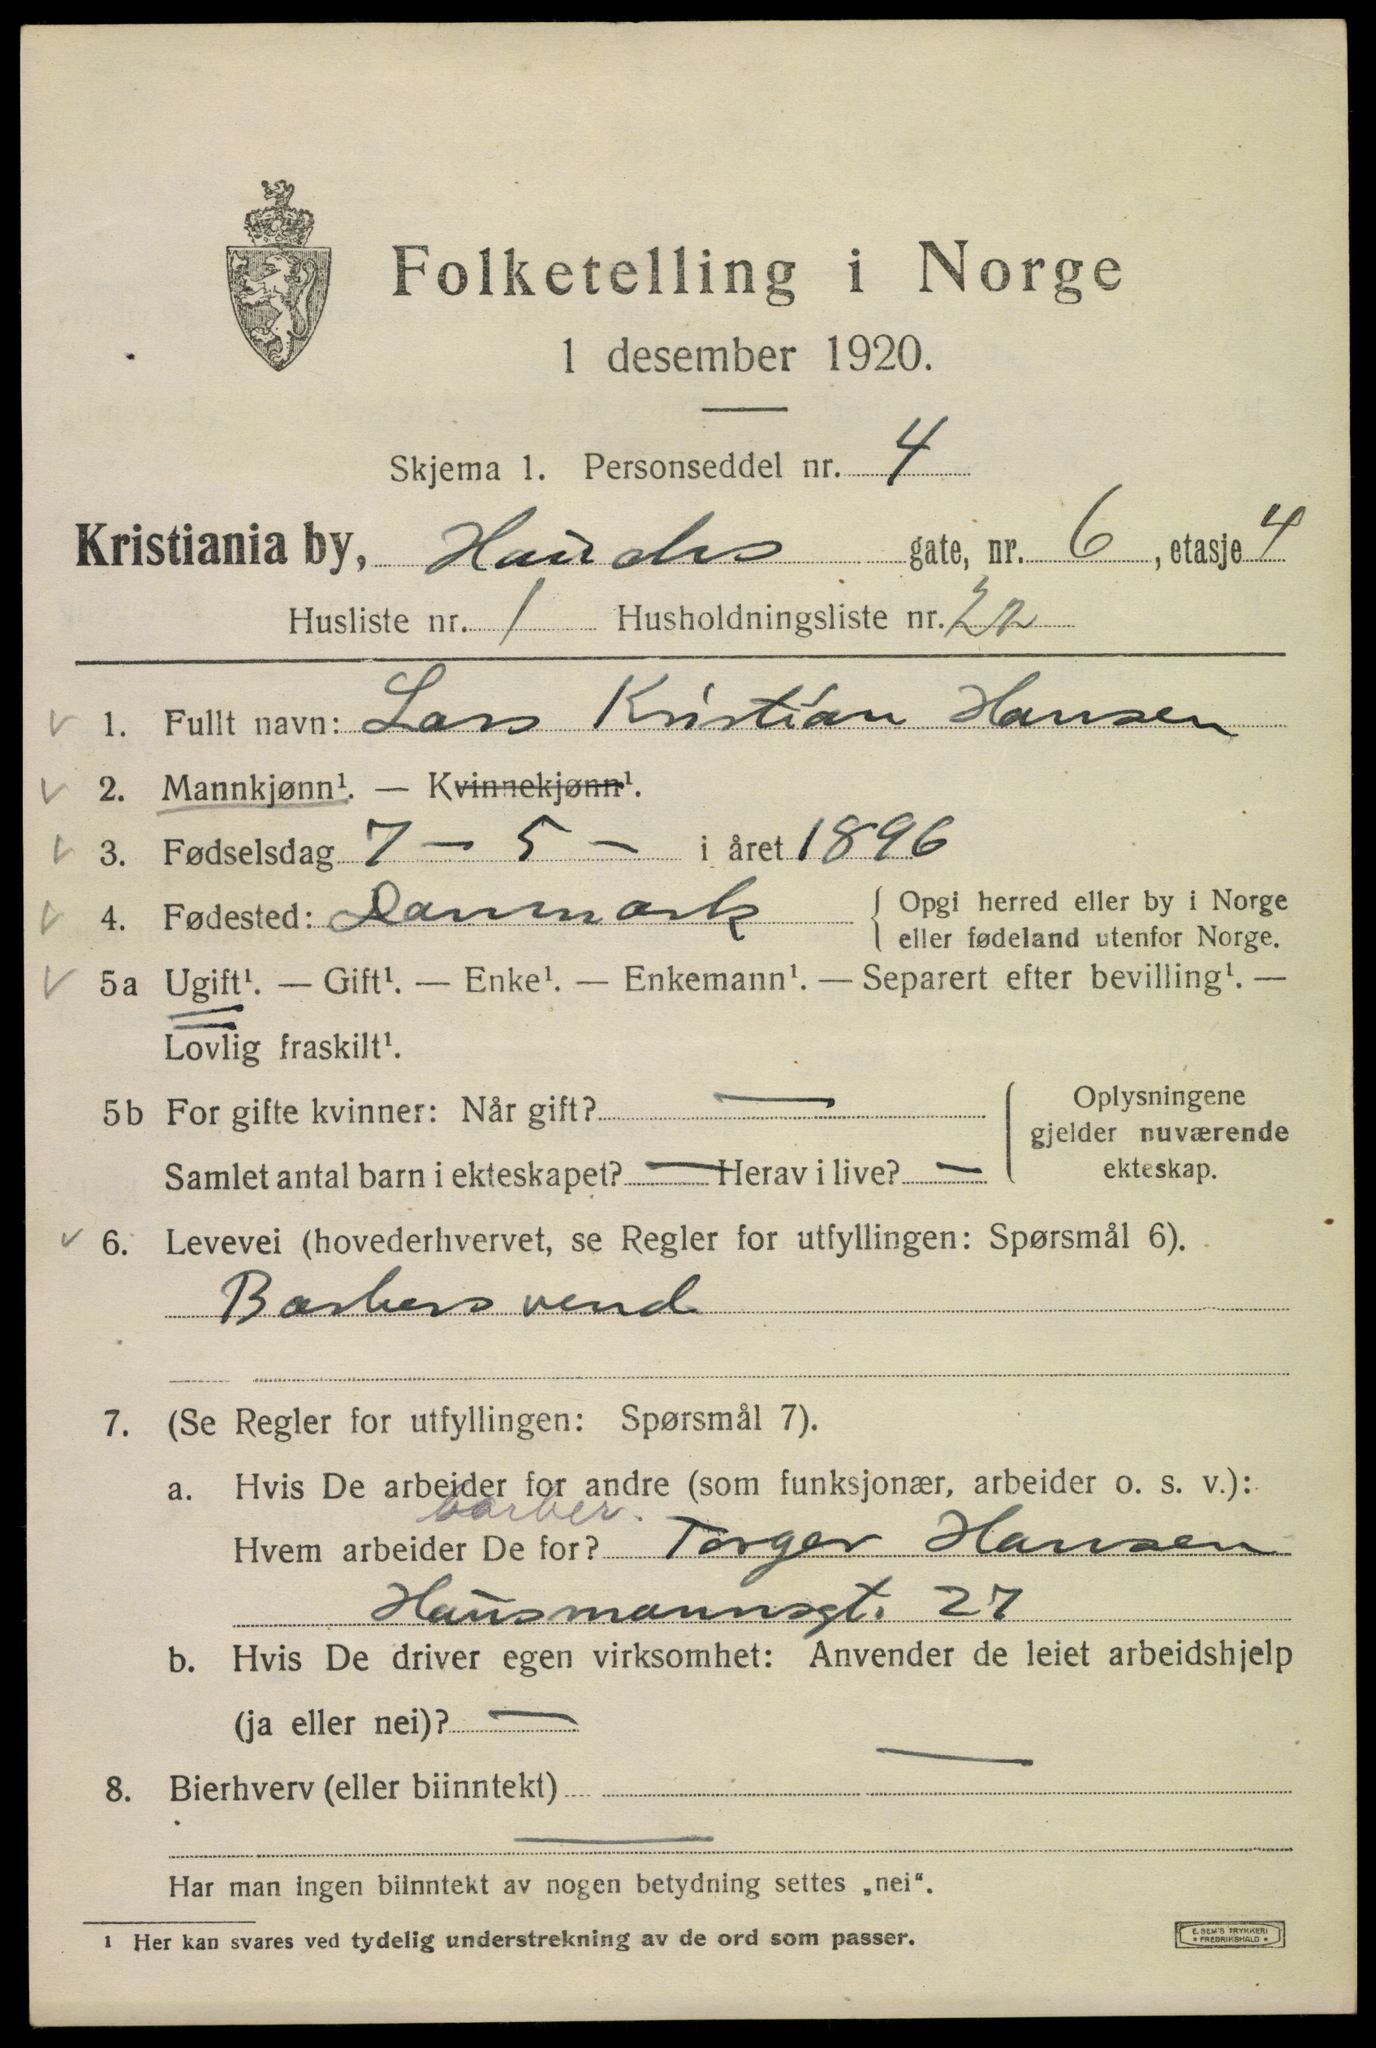 Folketelling i Norge
1 desember 1920.
Skjema 1. Personseddel nr. 4
Kristiania by, gate, nr. 6, etasje 4
Husliste nr. 1 Husholdningsliste nr. 22
1. Fullt navn: Lars Kristian Hansen
2. Mannkjønn¹. — Kvinnekjønn¹.
3. Fødselsdag 7 – 5 – i året 1896
4. Fødested: Danmark { Opgi herred eller by i Norge
eller fødeland utenfor Norge.
5a Ugift¹. — Gift¹. — Enke¹. — Enkemann¹. — Separert efter bevilling¹. —
Lovlig fraskilt¹.
5b For gifte kvinner: Når gift? — { Oplysningene
gjelder nuværende
Samlet antal barn i ekteskapet? — Herav i live? —
ekteskap.
6. Levevei (hovederhvervet, se Regler for utfyllingen: Spørsmål 6).
Barbersvend
7. (Se Regler for utfyllingen: Spørsmål 7).
a. Hvis De arbeider for andre (som funksjonær, arbeider o. s. v.):
barber.
Hvem arbeider De for? Torger Hansen
Hausmannsgt. 27
b. Hvis De driver egen virksomhet: Anvender de leiet arbeidshjelp
(ja eller nei)? —
8. Bierhverv (eller biinntekt) —
—
Har man ingen biinntekt av nogen betydning settes „nei“.
¹ Her kan svares ved tydelig understrekning av de ord som passer.
E. SEM'S TRYKKERI
* FREDRIKSHALD *